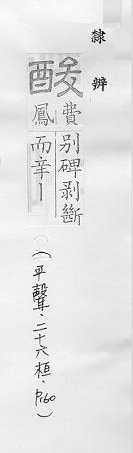 隸辨
酸
費鳳
別碑剝斷
而辛｜
（平聲·二十六桓·P.160）